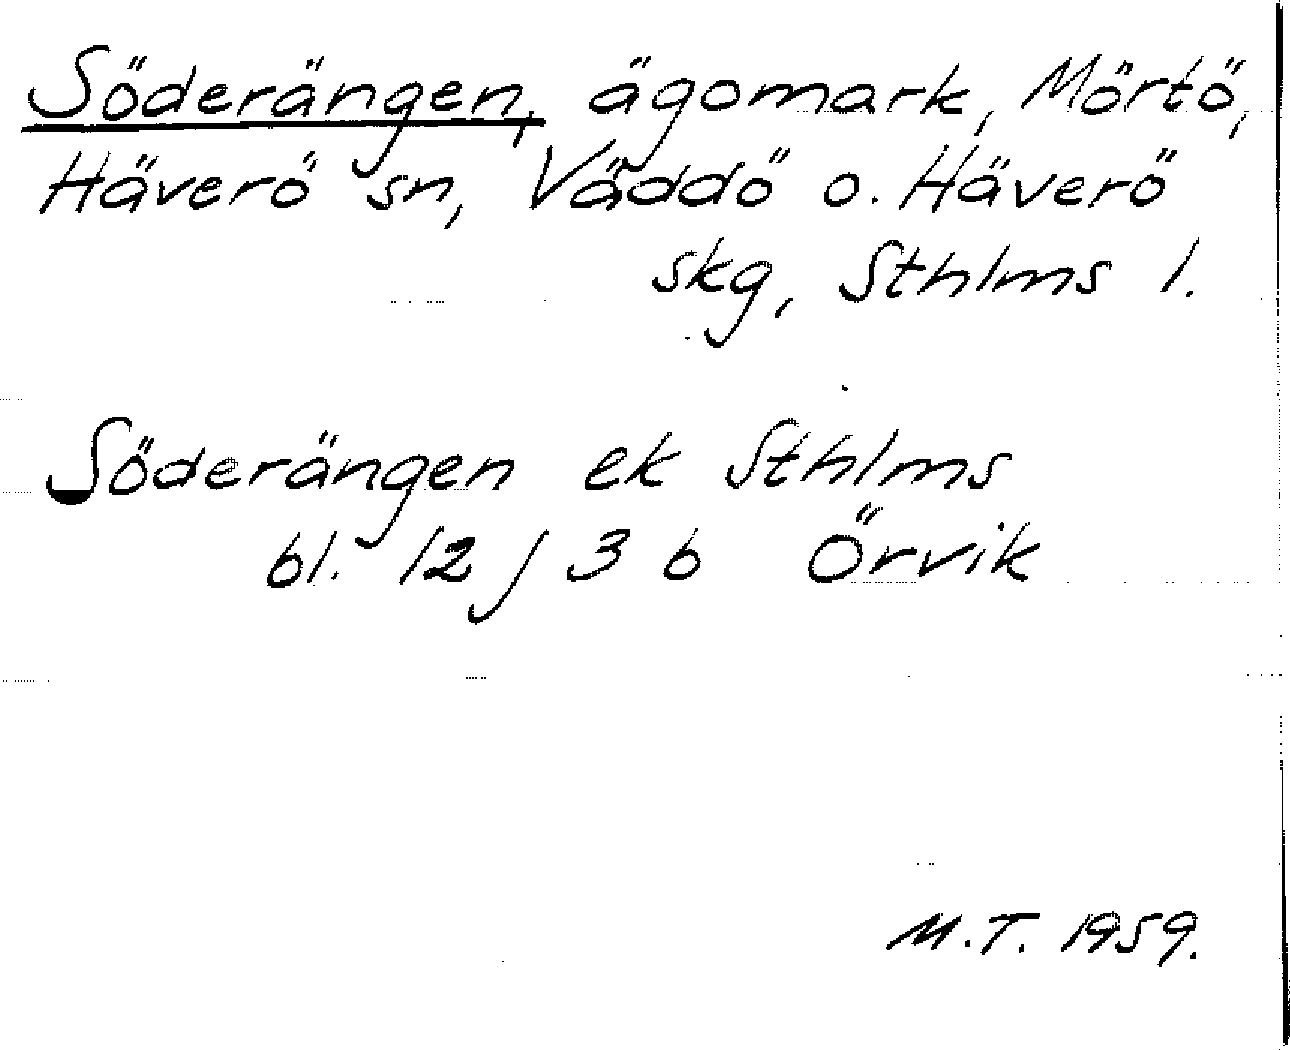 Söderängen, ägomark, Mörtö,
Häverö sn, Väddö o. Häverö
skg, Sthlms l.
Söderängen ek Sthlms
bl. 12 j 3 b Örvik
M.T. 1959.